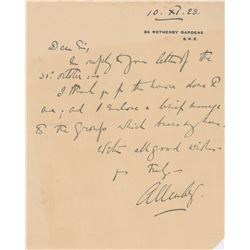 10. XI. 28.
34 WETHERBY GARDENS
S.W.5.
Dear Sir,
In reply to your letter of the
31st October :—
I thank you for the honour done to
me; and I enclose a brief message
to the Group which bears my name.
With all good wishes
yrs truly
Allenby